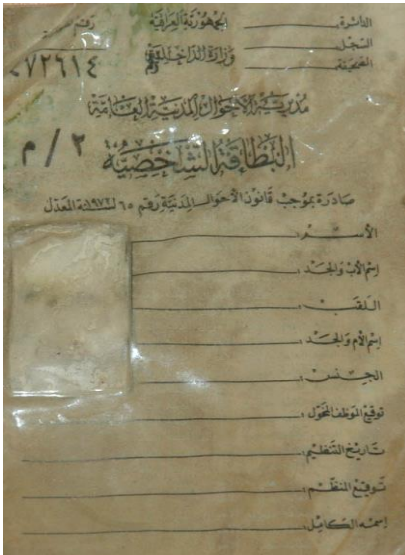 الدائرة: الجمهورية العراقية
السجل: وزارة الداخلية
الصحيفة:
٠٧٢٦١٤
مديرية الاحوال المدنية العامة
البطاقة الشخصية
م / ٢
صادرة بموجب قانون الاحوال المدنية رقم ٦٥ لسنة ١٩٧٢ المعدل
الأسم:
إسم الأب والجد:
اللقب:
إسم الأم والجد:
الجنس:
توقيع الموظف المخول:
تاريخ التنظيم:
توقيع المنظم:
إسمه الكامل: